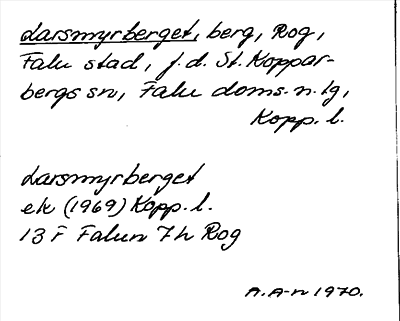 Larsmyrberget, berg, Rog,
Falu stad, f.d. St. Koppar-
bergs sn, Falu doms.n. tg,
Kopp. l.
Larsmyrberget
ek (1969) Kopp. l.
13 F Falun 7h Rog
A.A-n 1970.